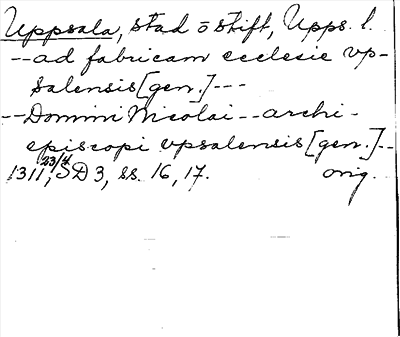 Uppsala, stad o stift, Upps. l.
--ad fabricam ecclesie vp-
salensis [gen.]---
--Domini Nicolai--archi-
episcopi vpsalensis [gen.]--
1311, 23/4 SD 3, ss. 16, 17. orig.